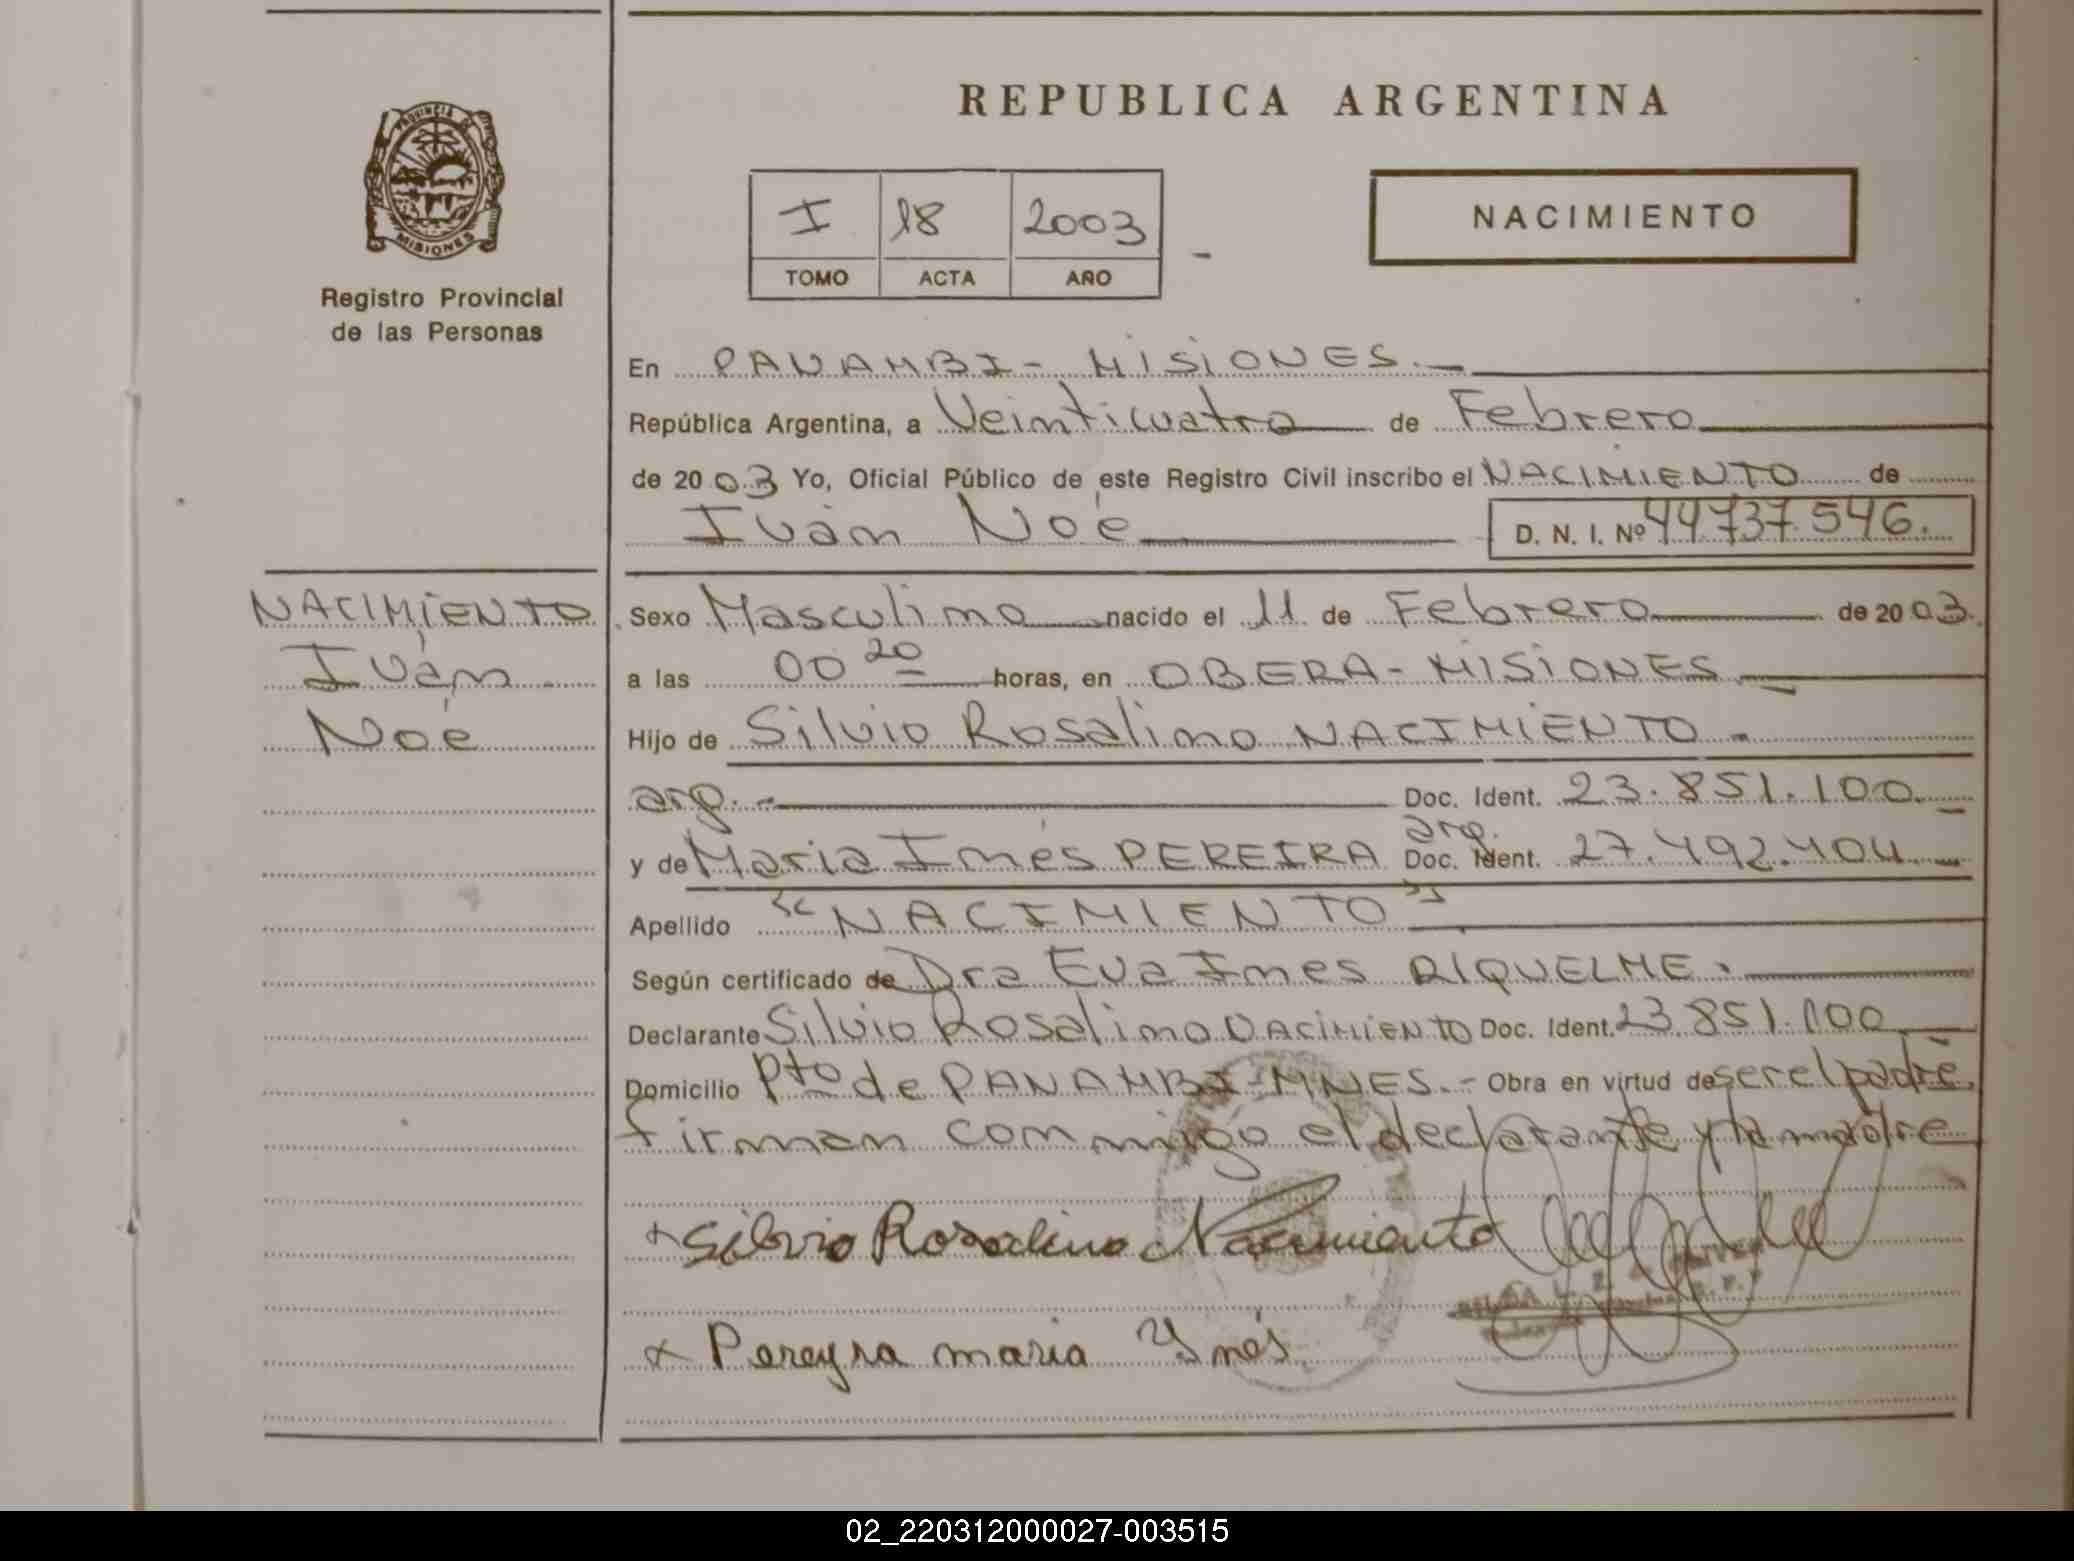 REPUBLICA ARGENTINA
PROVINCIA DE
MISIONES
Registro Provincial
de las Personas
I 18 2003
TOMO ACTA AÑO
NACIMIENTO
En PANAMBI - MISIONES.-
República Argentina, a Veinticuatro de Febrero
de 2003 Yo, Oficial Público de este Registro Civil inscribo el NACIMIENTO de
Iván Noé D. N. I. Nº 44737.546.
NACIMIENTO
Iván
Noé
Sexo Masculino nacido el 11 de Febrero de 2003.
a las 00 20 horas, en OBERA - MISIONES.-
Hijo de Silvio Rosalino NACIMIENTO.-
arg.- Doc. Ident. 23.851.100.-
arg.
y de Maria Inés PEREIRA Doc. Ident. 27.492.404.-
Apellido "NACIMIENTO"
Según certificado de Dra Eva Ines RIQUELME.
Declarante Silvio Rosalino NACIMIENTO Doc. Ident. 23.851.100.
Domicilio Pto de PANAMBI-MNES.- Obra en virtud de ser el padre.
firman conmigo el declarante y la madre
x Silvio Rosalino Nacimiento
x Pereyra maria Ynés
02_220312000027-003515